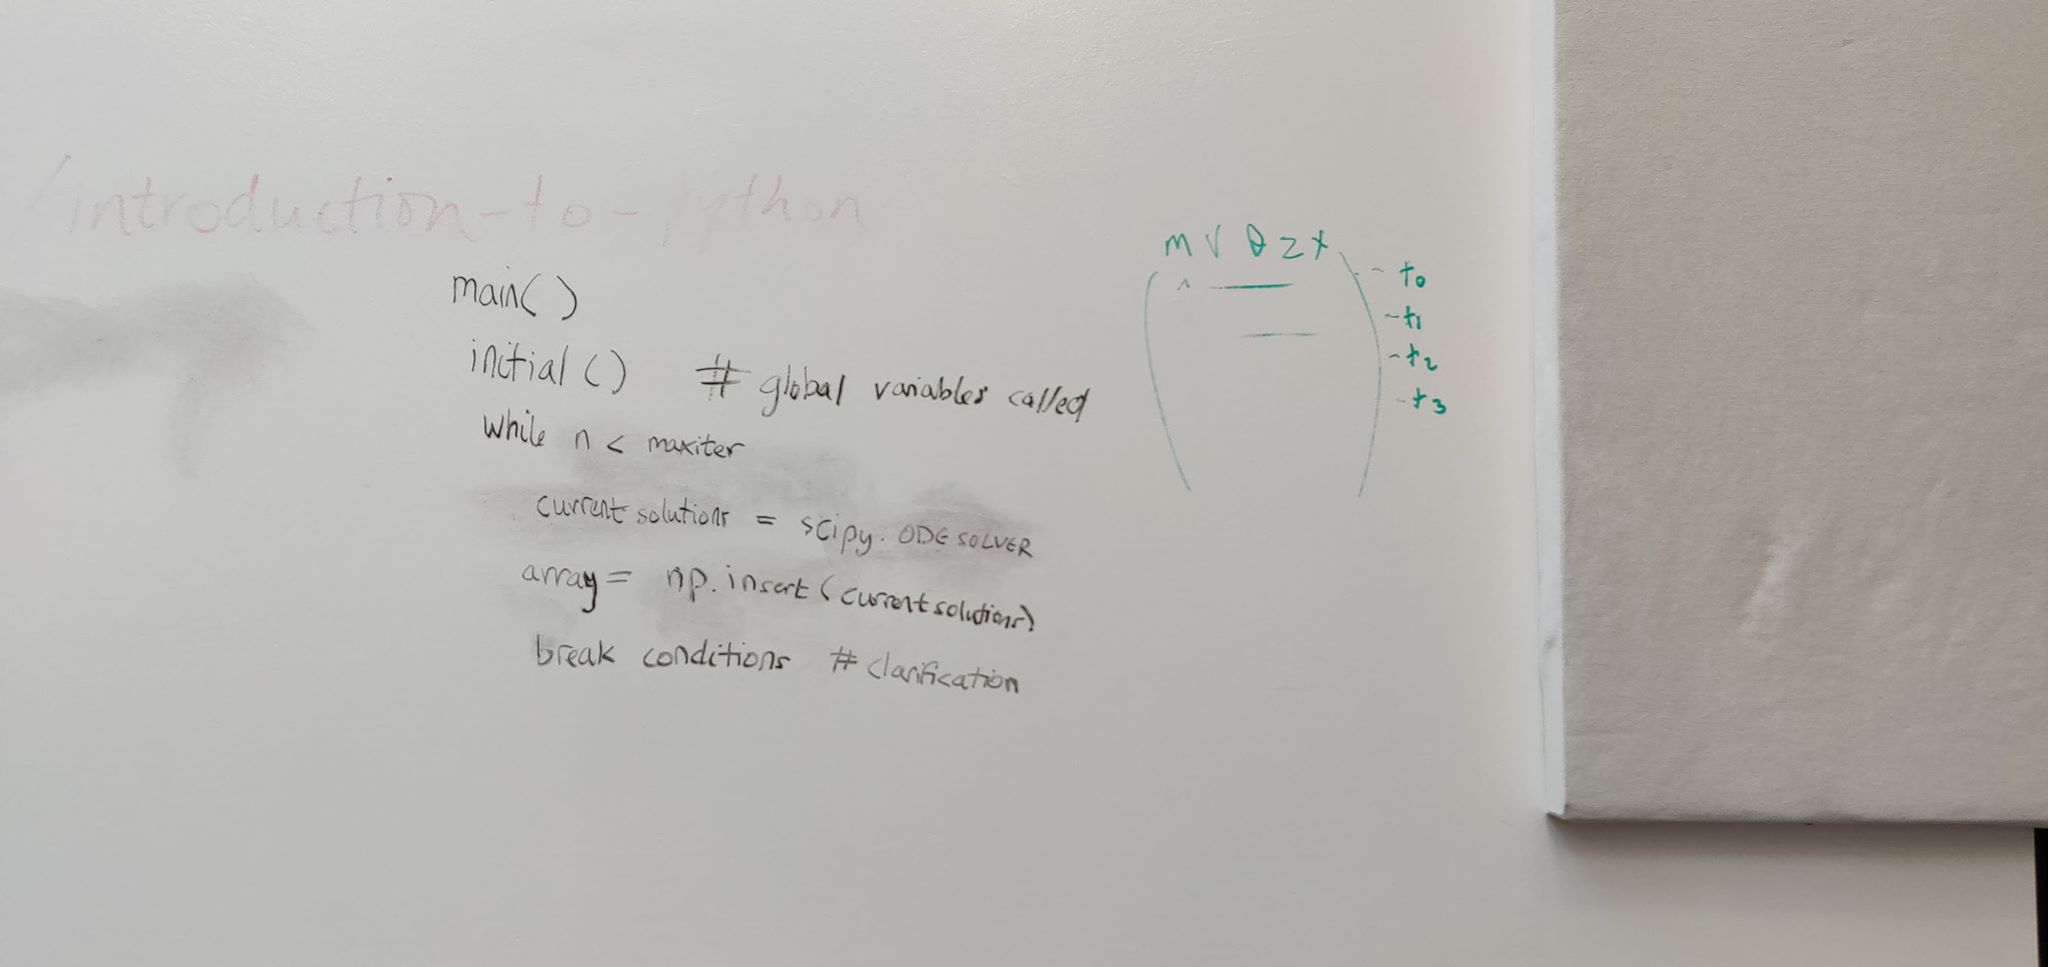 /introduction-to-python
main()
initial() # global variables called
while n < maxiter
current solutions = scipy. ODE SOLVER
array = np.insert(current solutions)
break conditions # clarification
m v θ z x
- t0
- t1
- t2
- t3